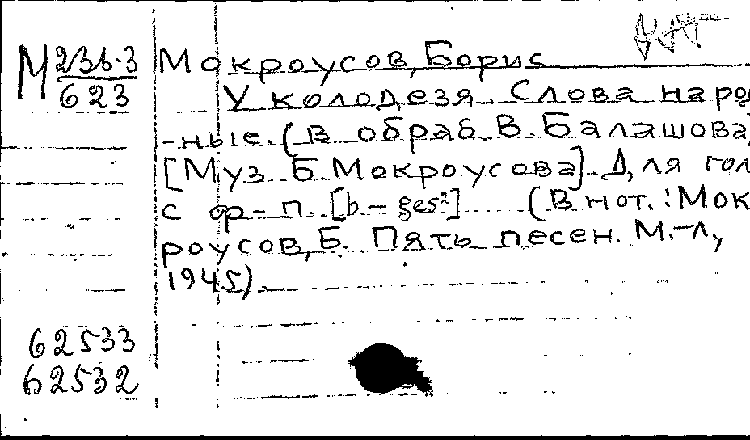 М 236-3 Мокроусов, Борис
623 У колодезя. Слова народ
-ные. (в обраб. В. Балашова)
[Муз. Б. Мокроусова]. Для гол.
с ф-п. [b-ges²] (В нот.: Мок
роусов, Б. Пять песен. М.-Л.,
1945).
62533
62532